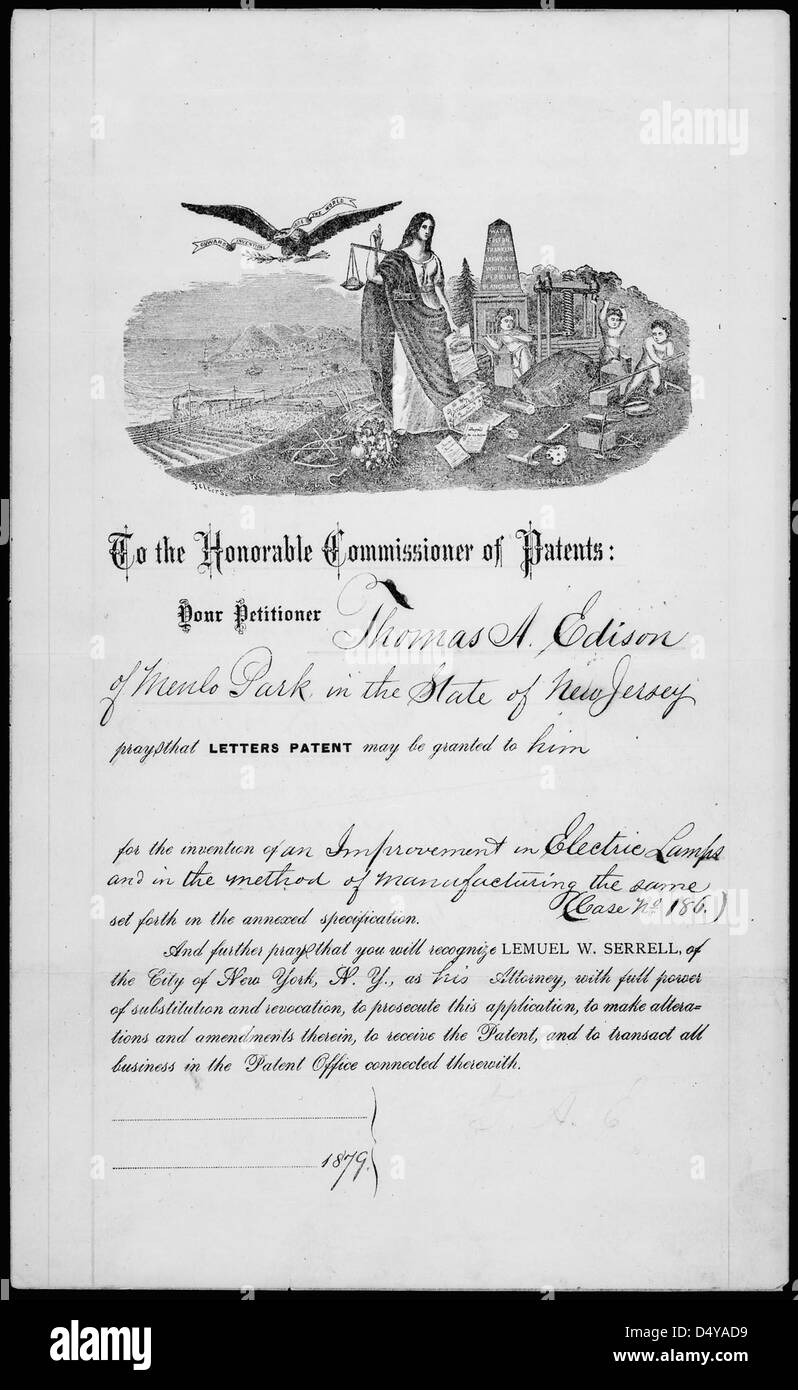 alamy
ONWARD INVENTIONS OF THE WORLD
WATT
FULTON
FRANKLIN
ARKWRIGHT
WHITNEY
PERKINS
BLANCHARD
SERRELL
To the Honorable Commissioner of Patents:
Your Petitioner Thomas A. Edison
of Menlo Park in the State of New Jersey
prays that LETTERS PATENT may be granted to him
for the invention of an Improvement in Electric Lamps
and in the method of manufacturing the same
(Case No 186.)
set forth in the annexed specification.
And further prays that you will recognize LEMUEL W. SERRELL, of
the City of New York, N. Y., as his Attorney, with full power
of substitution and revocation, to prosecute this application, to make altera=
tions and amendments therein, to receive the Patent, and to transact all
business in the Patent Office connected therewith.
T. A. E
1879.
alamy
Image ID: D4YAD9
www.alamy.com